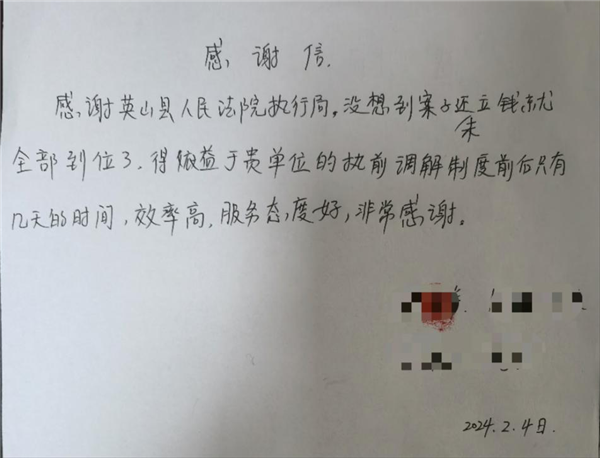 感谢信.
感谢英山县人民法院执行局。没想到案子还未立钱就
全部到位了.得依益于贵单位的执前调解制度前后只有
几天的时间，效率高，服务态度好，非常感谢。
2024.2.4日.